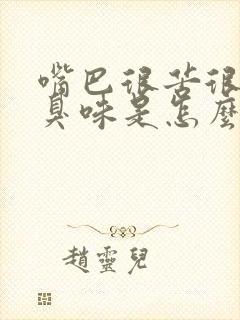 嘴巴很苦很
臭味是怎麼
趙靈兒